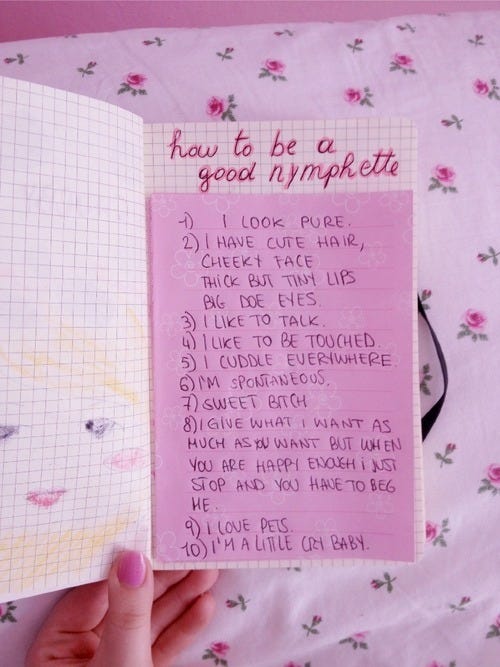 how to be a
good nymphette
1) I LOOK PURE.
2) I HAVE CUTE HAIR,
CHEEKY FACE
THICK BUT TINY LIPS
BIG DOE EYES.
3) I LIKE TO TALK.
4) I LIKE TO BE TOUCHED.
5) I CUDDLE EVERYWHERE.
6) I'M SPONTANEOUS.
7) SWEET BITCH
8) I GIVE WHAT I WANT AS
MUCH AS YOU WANT BUT WHEN
YOU ARE HAPPY ENOUGH i JUST
STOP AND YOU HAVE TO BEG
ME.
9) I LOVE PETS.
10) I'M A LITTLE CRY BABY.